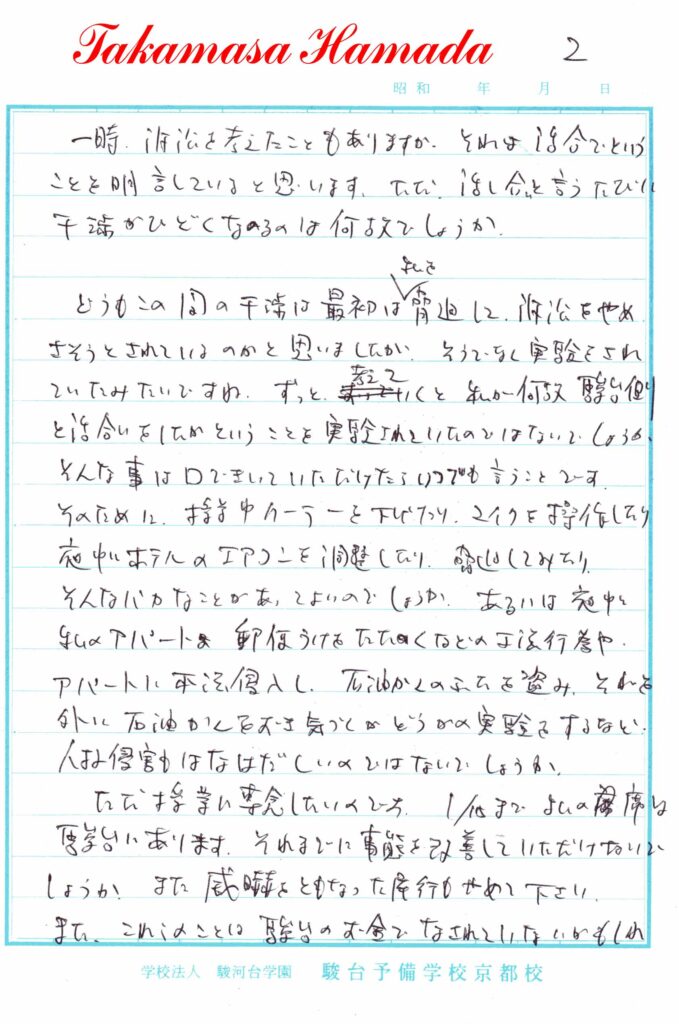 Takamasa Hamada 2
昭和 年 月 日
一時、訴訟を考えたこともありますが、それは話合でという
ことを明言していると思います。ただ、話し合と言うたびに
干渉がひどくなるのは何故でしょうか。
私を
どうもこの間の干渉は最初は脅迫して、訴訟をやめ
させようとされているのかと思いましたが、そうでなく実験をされ
ていたみたいですね。ずっと、考えていくと私が何故駿台側
と話合いをしたがということを実験されていたのではないでしょうか。
そんな事は口できいていただけたらいつでも言うことです。
そのために、授業中クーラーを下げたり、マイクを操作したり
夜中にホテルのエアコンを調整したり、脅迫してみたり、
そんなバカなことがあってよいのでしょうか。あるいは夜中に
私のアパートの郵便うけをたたくなどの不法行為や、
アパートに不法侵入し、石油かんのふたを盗み、それを
外に石油かんをおき気づくかどうかの実験をするなど、
人権侵害もはなはだしいのではないでしょうか。
ただ授業に専念したいのです。 私の 席は
駿台にあります。それまでに事態を改善していただけないで
しょうか。また威嚇をともなった 行もやめて下さい。
また、これらのことは駿台のお金でなされていないかもしれ
学校法人 駿河台学園 駿台予備学校京都校